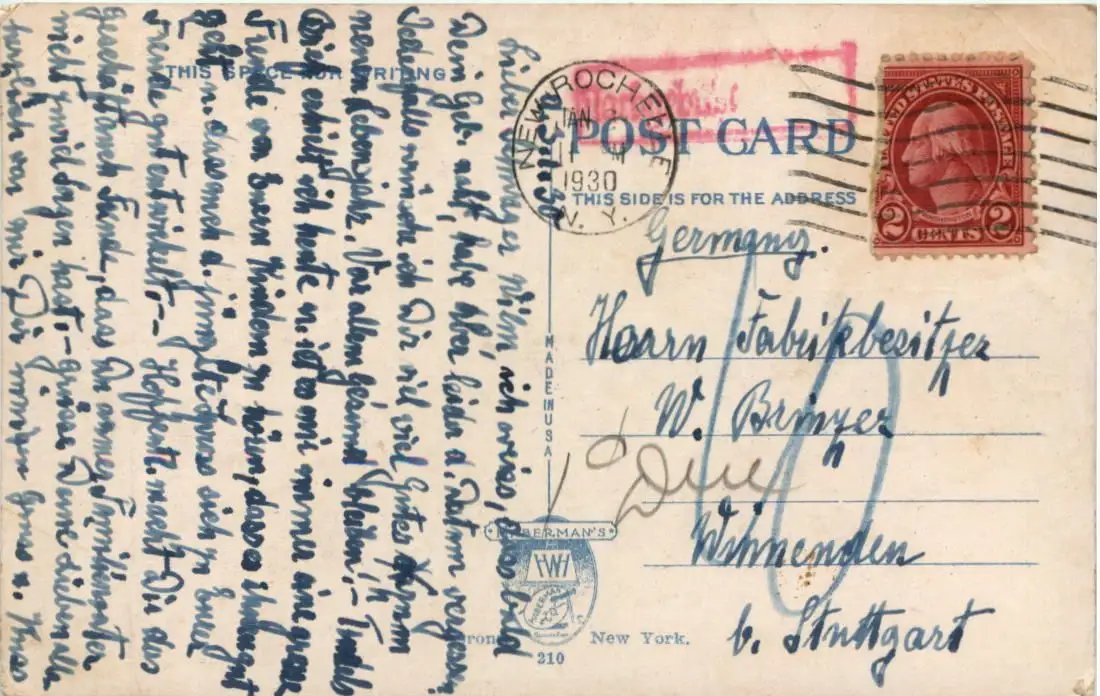 THIS SPACE FOR WRITING
Lieber Schwager ich weiss, dass bald
Dein Geb. ist, habe aber leider d. Datum vergessen.
Jedenfalls wünsche ich Dir viel viel Gutes im
neuen Lebensjahr. Vor allem gesund bleiben! – Trudels
Brief erhielt ich heute u. ist es mir immer eine grosse
Freude von Euren Kindern zu hören, dass es ihnen gut
geht u. dass auch d. jüngste sich zu Eurer
Freude gut entwickelt. – Hoffentl. macht Dir das
Geschäft noch Freude, dass Du immer
nicht zuviel Sorgen hast. – Grüsse Deine Lieben alle
herzlich von mir Dir Gruss u. Kuss
NEW ROCHELLE
JAN
1930
N. Y.
POST CARD
THIS SIDE IS FOR THE ADDRESS
2 CENTS 2
Germany.
Herrn Fabrikbesitzer
W. Brinzer
Due
10
Winnenden
b. Stuttgart
MADE IN USA
HABERMAN'S
New York.
210